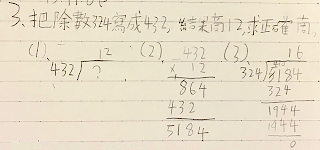 3、把除數324寫成432, 結果商12,求正確商,
(1)、 12 (2)、 432 (3)、 16
432 ? × 12 324 5184
864 324
432 1944
5184 1944
0